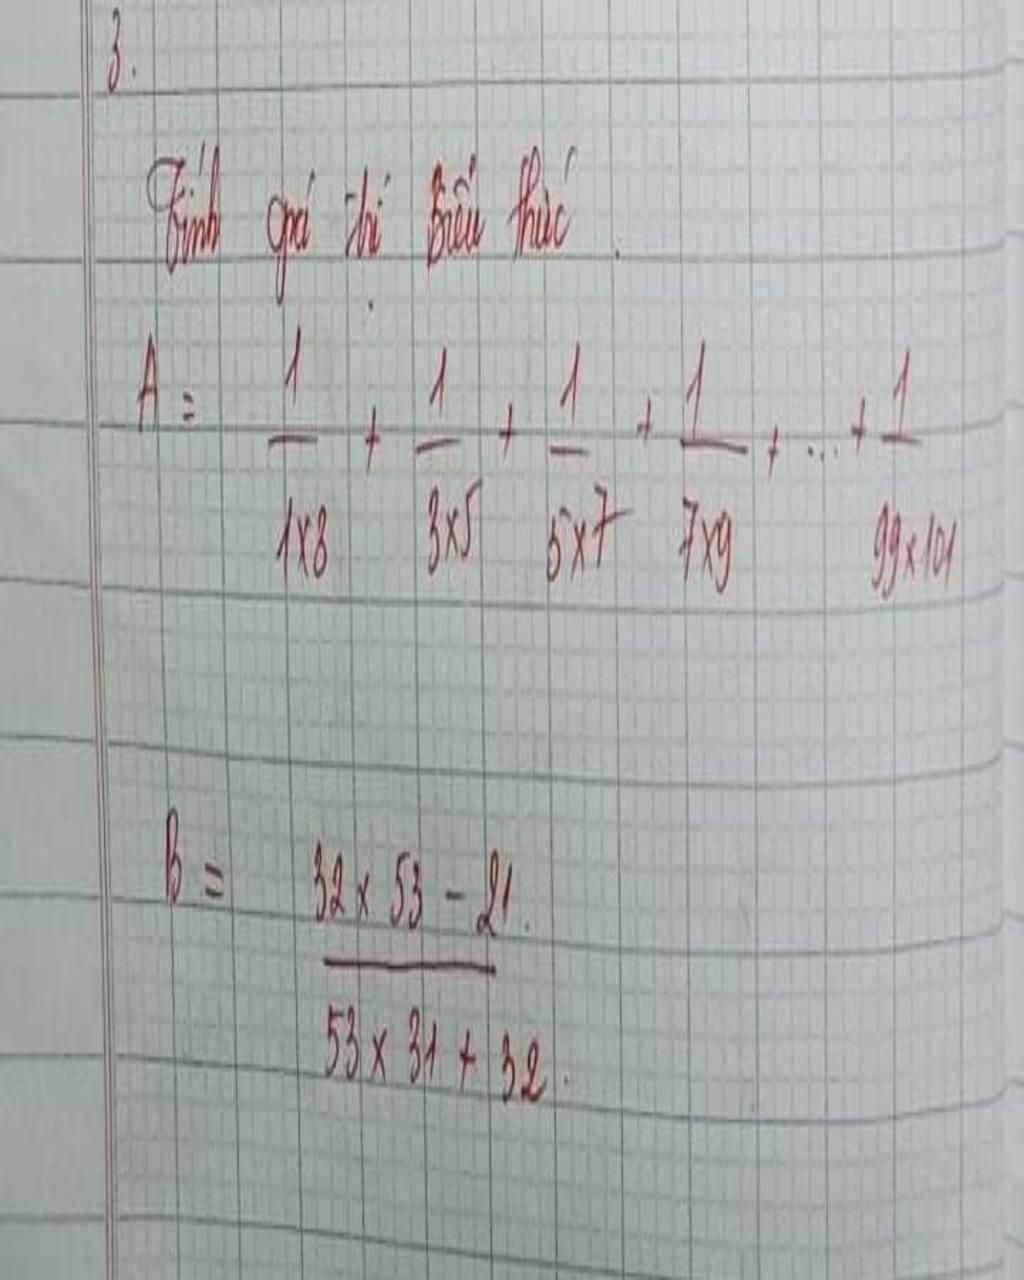 3.
Tính giá trị biểu thức.
A = 1/1x3 + 1/3x5 + 1/5x7 + 1/7x9 + ... + 1/99x101
B = 32 x 53 - 21.
53 x 31 + 32.